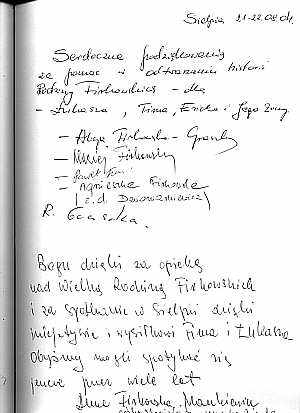 Sielpia 21-22.08.04.
Serdeczne podziękowania
za pomoc w odtwarzaniu historii
Rodziny Firkowskich - dla
- Łukasza, Tima, Ericka i Jego żony
- Alicja Firkowska -
- Maciej Firkowski
- Paweł
- Agnieszka Firkowska
R.
Bogu dzięki za opiekę
nad Wielką Rodziną Firkowskich
i za spotkanie w Sielpii dzięki
inicjatywie i wysiłkowi Tima i Łukasza
Obyśmy mogli spotykać się
jeszcze przez wiele lat
Firkowska